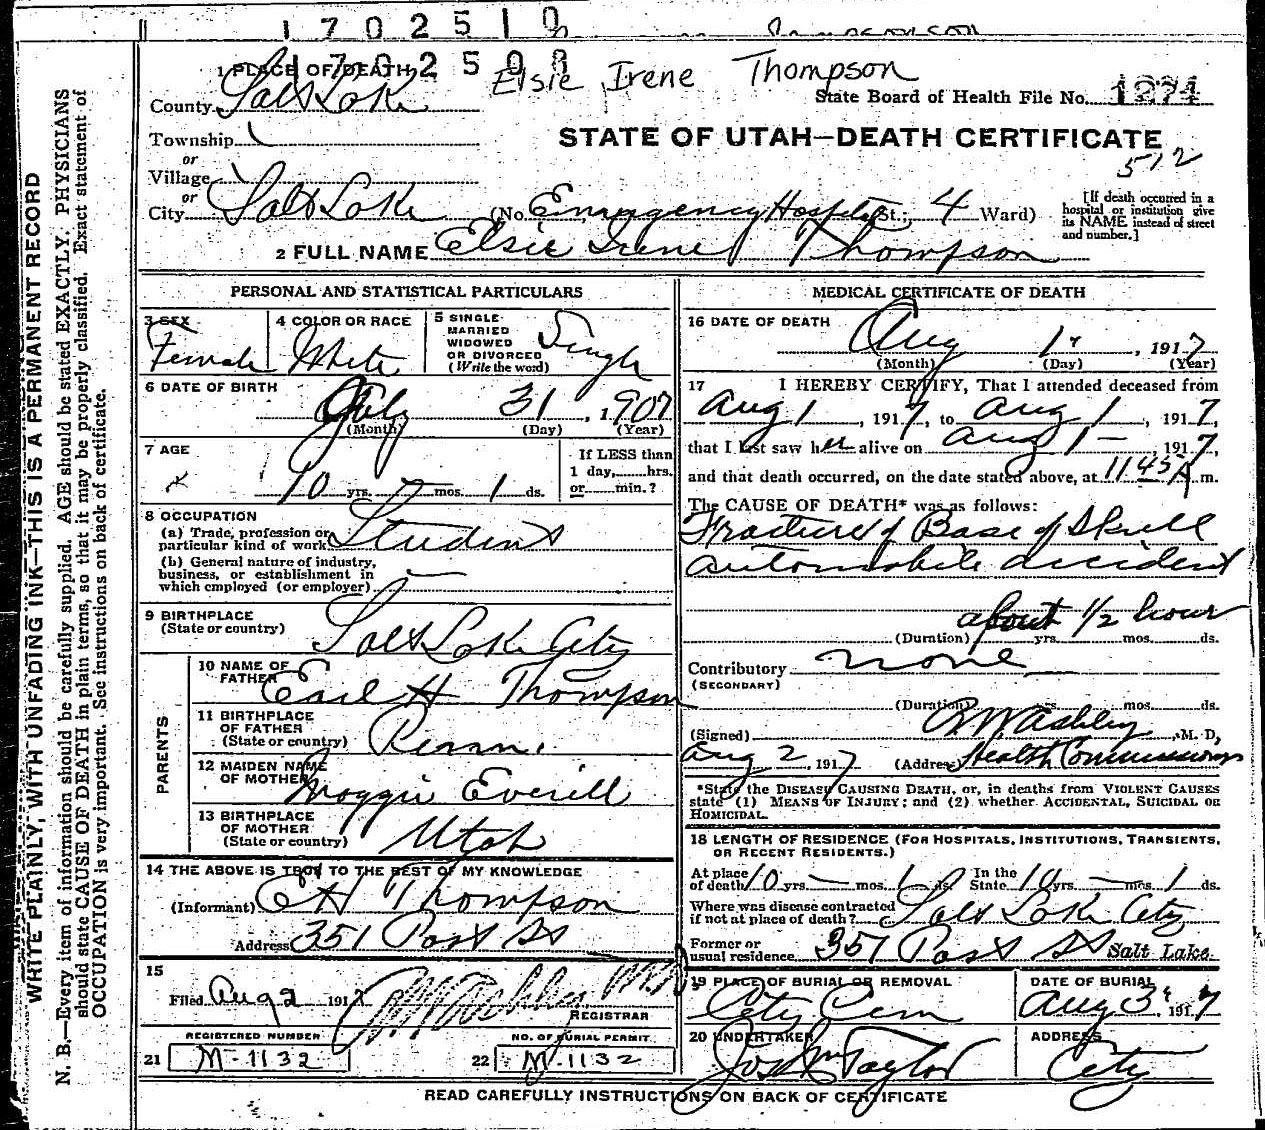 1702510
1702508
Elsie Irene Thompson
1 PLACE OF DEATH
County Salt Lake
State Board of Health File No. 1274
Township
STATE OF UTAH—DEATH CERTIFICATE
or
512
Village
or
City Salt Lake (No. Emergency Hospital St.; 4 Ward)
[If death occurred in a hospital or institution give its NAME instead of street and number.]
2 FULL NAME Elsie Irene Thompson
PERSONAL AND STATISTICAL PARTICULARS
3 SEX
Female
4 COLOR OR RACE
White
5 SINGLE
MARRIED
WIDOWED
OR DIVORCED
(Write the word)
Single
6 DATE OF BIRTH
July 31, 1907
(Month) (Day) (Year)
7 AGE
10 yrs. — mos. 1 ds.
If LESS than
1 day, hrs.
or min.?
8 OCCUPATION
(a) Trade, profession or
particular kind of work Student
(b) General nature of industry,
business, or establishment in
which employed (or employer) —
9 BIRTHPLACE
(State or country) Salt Lake City
PARENTS
10 NAME OF
FATHER Earl H Thompson
11 BIRTHPLACE
OF FATHER
(State or country) Penn.
12 MAIDEN NAME
OF MOTHER Maggie Everill
13 BIRTHPLACE
OF MOTHER
(State or country) Utah
14 THE ABOVE IS TRUE TO THE BEST OF MY KNOWLEDGE
(Informant) E H Thompson
Address 351 Post St
15
Filed Aug 2 1917
REGISTRAR
REGISTERED NUMBER
21 M-1132
NO. OF BURIAL PERMIT
22 M-1132
MEDICAL CERTIFICATE OF DEATH
16 DATE OF DEATH
Aug 1, 1917
(Month) (Day) (Year)
17 I HEREBY CERTIFY, That I attended deceased from
Aug 1, 1917, to Aug 1, 1917,
that I last saw her alive on Aug 1 — 1917,
and that death occurred, on the date stated above, at 1145 A m.
The CAUSE OF DEATH* was as follows:
Fracture of Base of Skull
Automobile accident
about 1/2 hour
(Duration) yrs. mos. ds.
Contributory none
(SECONDARY)
(Duration) yrs. mos. ds.
(Signed) Ashley, M. D,
Aug 2, 1917 (Address) Health Commissioner
*State the DISEASE CAUSING DEATH, or, in deaths from VIOLENT CAUSES
state (1) MEANS OF INJURY; and (2) whether ACCIDENTAL, SUICIDAL OR
HOMICIDAL.
18 LENGTH OF RESIDENCE (FOR HOSPITALS, INSTITUTIONS, TRANSIENTS,
OR RECENT RESIDENTS.)
At place
of death 10 yrs. — mos. 1 ds. In the
State 10 yrs. — mos. 1 ds.
Where was disease contracted
if not at place of death? Salt Lake City
Former or
usual residence 351 Post St Salt Lake
19 PLACE OF BURIAL OR REMOVAL
City Cem
DATE OF BURIAL
Aug 3, 1917
20 UNDERTAKER
Jos Wm Taylor
ADDRESS
City
READ CAREFULLY INSTRUCTIONS ON BACK OF CERTIFICATE
WRITE PLAINLY, WITH UNFADING INK—THIS IS A PERMANENT RECORD
N. B.—Every item of information should be carefully supplied. AGE should be stated EXACTLY. PHYSICIANS
should state CAUSE OF DEATH in plain terms, so that it may be properly classified. Exact statement of
OCCUPATION is very important. See instructions on back of certificate.